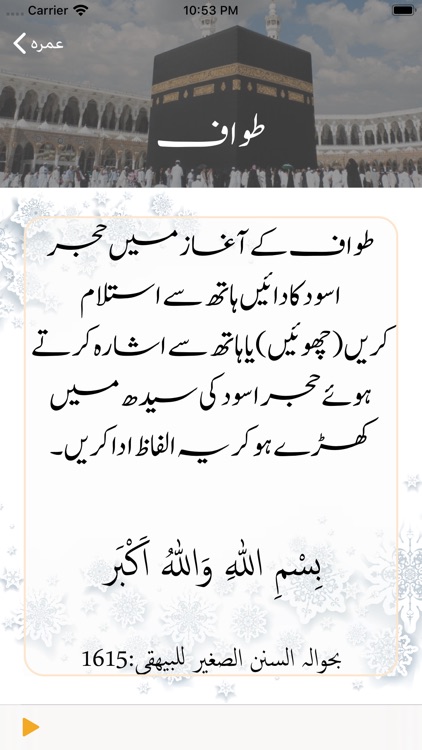 Carrier 10:53 PM
عمره
طواف
طواف کے آغاز میں حجر
اسود کا دائیں ہاتھ سے استلام
کریں (چھوئیں) یا ہاتھ سے اشارہ کرتے
ہوئے حجر اسود کی سیدھ میں
کھڑے ہو کر یہ الفاظ ادا کریں۔
بِسْمِ اللهِ وَاللهُ اَكْبَر
بحوالہ السنن الصغیر للبیهقی:1615